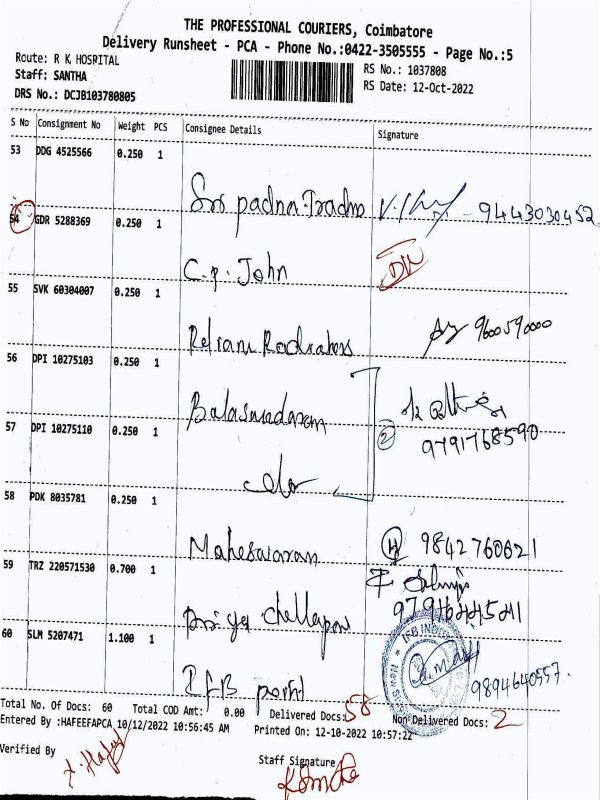 THE PROFESSIONAL COURIERS, Coimbatore
Delivery Runsheet - PCA - Phone No.:0422-3505555 - Page No.:5
Route: R K HOSPITAL
RS No.: 1037808
Staff: SANTHA
RS Date: 12-Oct-2022
DRS No.: DCJB103780805
S No Consignment No Weight PCS Consignee Details Signature
53 DDG 4525566 0.250 1
Sri padna Tradrs 9443030452
54 GDR 5288369 0.250 1
C.p. John
55 SVK 60304007 0.250 1
9600590000
56 DPI 10275103 0.250 1
57 DPI 10275110 0.250 1
2 9791768590
58 PDK 8035781 0.250 1
Maheswaran H 9842760621
59 TRZ 220571530 0.700 1
60 SLM 5207471 1.100 1
IFB point 9894640557.
Total No. Of Docs: 60 Total COD Amt: 0.00 Delivered Docs: 58 Non Delivered Docs: 2
Entered By :HAFEEFAPCA 10/12/2022 10:56:45 AM Printed On: 12-10-2022 10:57:22
Verified By
Staff Signature